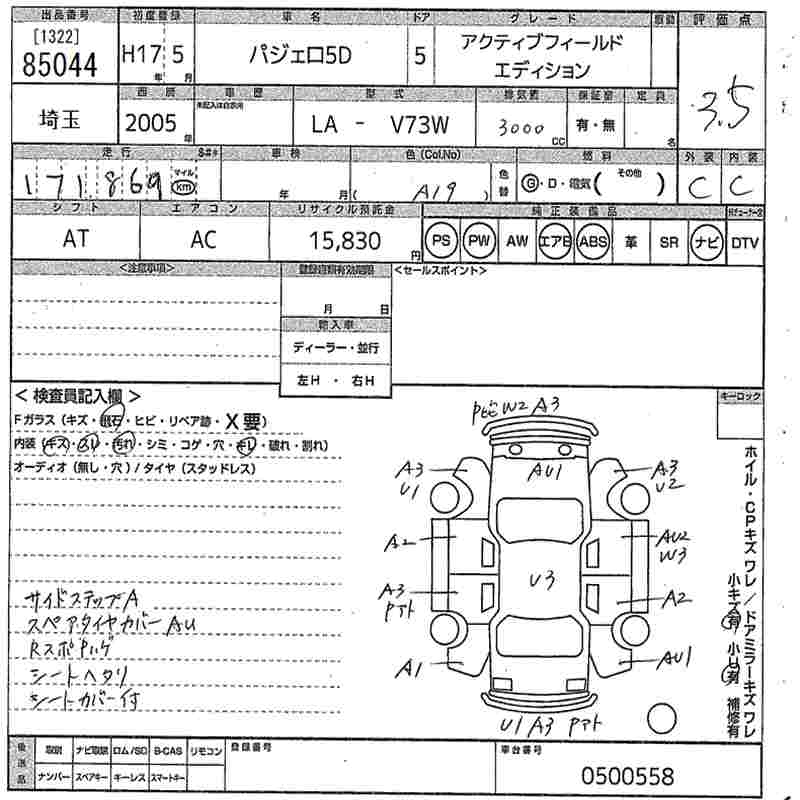 出品番号 初度登録 車名 ドア グレード 評価点
[1322]
85044 H17 5 パジェロ5D 5 アクティブフィールド
エディション
年 月
3.5
埼玉 西暦 車歴 型式 排気量 保証書 定員
未記入は自家用
2005 年 LA - V73W 3000 CC 有・無 名
走行 車検 色(Col.No) 燃料 外装 内装
171869 マイル km 年 月 ( A19 ) 色替 G・D・電気( その他 ) C C
シフト エアコン リサイクル預託金 純正装備品
AT AC 15,830 円 PS PW AW エアB ABS 革 SR ナビ DTV
<注意事項> 登録書類有効期限 <セールスポイント>
月 日
輸入車
ディーラー・並行
左H ・ 右H
<検査員記入欄> キーロック
Fガラス(キズ・飛石・ヒビ・リペア跡・X要)
内装(キズ・スレ・汚れ・シミ・コゲ・穴・キレ・破れ・割れ)
オーディオ(無し・穴)/タイヤ(スタッドレス)
PビビW2 A3
AU1
A3
U1
A3
U2
A2
AU2
W3
U3
A3
Pアト
A2
A1
AU1
U1 A3 Pアト
サイドステップA
スペアタイヤカバーAU
RスポPハゲ
シートヘタリ
シートカバー付
ホイル・CPキズ ワレ/ドアミラーキズ ワレ
小キズ有 小U有 補修有
後送品 取説 ナビ取説 ロム/SD B-CAS リモコン 登録番号 車台番号
ナンバー スペアキー キーレス スマートキー
0500558